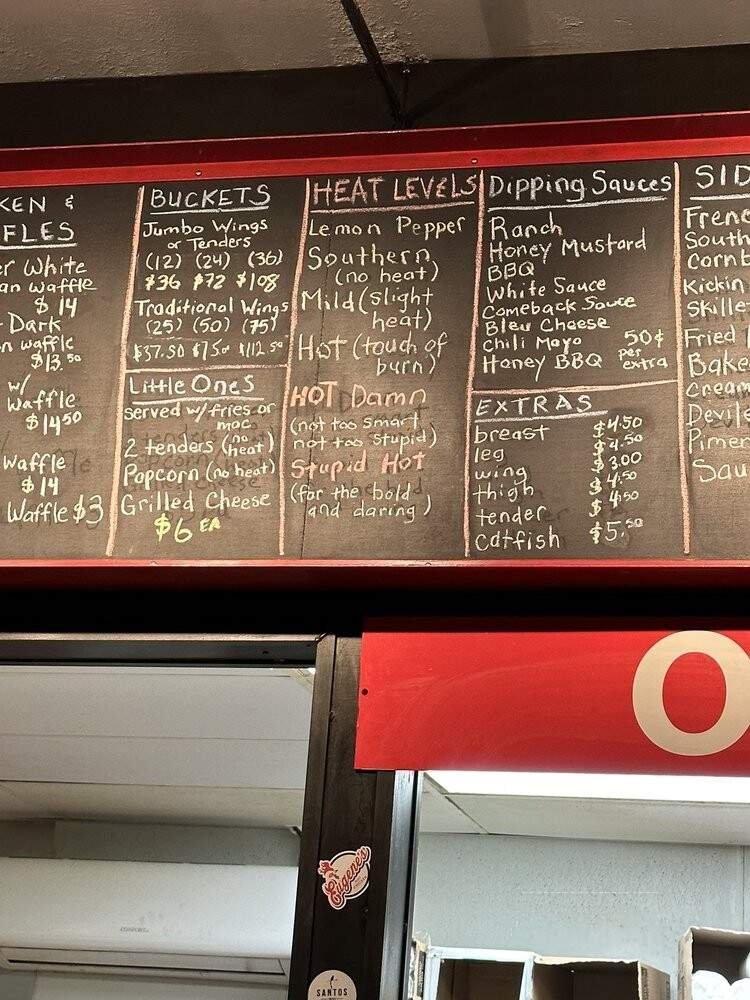 KEN &
FLES
er White
an waffle
$14
- Dark
n waffle
$13.50
w/
Waffle
$14.50
Waffle
$14
Waffle $3
BUCKETS
Jumbo Wings
or Tenders
(12) (24) (36)
$36 $72 $108
Traditional Wings
(25) (50) (75)
$37.50 $75.00 $112.50
Little Ones
served w/ fries or
mac
2 tenders (no heat)
Popcorn (no heat)
Grilled Cheese
$6 EA
HEAT LEVELS
Lemon Pepper
Southern
(no heat)
Mild (slight
heat)
Hot (touch of
burn)
HOT Damn
(not too smart
not too stupid)
Stupid Hot
(for the bold
and daring)
Dipping Sauces
Ranch
Honey Mustard
BBQ
White Sauce
Comeback Sauce
Bleu Cheese
Chili Mayo
Honey BBQ
50¢
per
extra
EXTRAS
breast $4.50
leg $4.50
wing $3.00
thigh $4.50
tender $4.50
catfish $5.50
SID
Frenc
South
Cornb
Kickin
Skille
Fried
Bake
Cream
Devile
Pimen
Sau
O
Eugene's
SANTOS